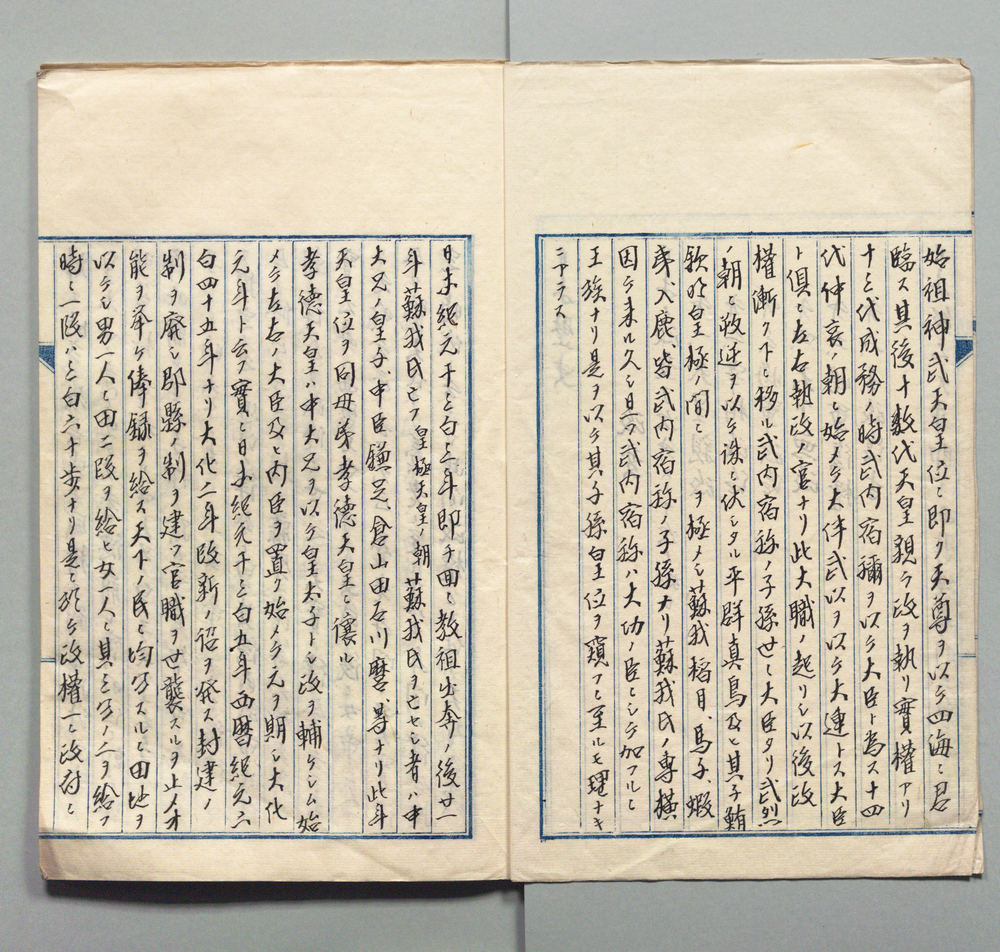 始祖神武天皇位ニ即ク天尊ヲ以テ四海ニ君
臨ス其後十数代天皇親ラ政ヲ執リ實權アリ
十三代成務ノ時武内宿禰ヲ以テ大臣ト為ス十四
代仲哀ノ朝ニ始メテ大伴武以ヲ以テ大連トス大臣
ト倶ニ左右執政ノ官ナリ此大職ノ起リシ以後政
權漸ク下ニ移ル武内宿祢ノ子孫世ニ大臣タリ武烈
ノ朝ニ叛逆ヲ以テ誅ニ伏シタル平群真鳥及ヒ其子鮪
欽明皇極ノ間ニ ヲ極メシ蘇我稻目、馬子、蝦
夷、入鹿、皆武内宿祢ノ子孫ナリ蘇我氏ノ専横
因テ来ル久シ且ツ武内宿祢ハ大功ノ臣ニシテ加フルニ
王族ナリ是ヲ以テ其子孫皇位ヲ窺フニ至ルモ理ナキ
ニアラス
日本紀元千三百三年即チ回ヽ教祖出奔ノ後廿一
年蘇我氏亡フ皇極天皇ノ朝蘇我氏ヲ亡セシ者ハ中
大兄ノ皇子、中臣鎌足、倉山田石川麿、等ナリ此年
天皇位ヲ同母弟孝德天皇ニ讓ル
孝德天皇ハ中大兄ヲ以テ皇太子トシ政ヲ輔ケシム始
メテ左右ノ大臣及ヒ内臣ヲ置ク始メテ元ヲ期シ大化
元年ト云フ實ニ日本紀元千三百五年西暦紀元六
百四十五年ナリ大化二年改新ノ詔ヲ発ス封建ノ
制ヲ廃シ郡縣ノ制ヲ建ツ官職ヲ世襲スルヲ止メ才
能ヲ挙ケ俸録ヲ給ス天下ノ民ニ均分スルニ田地ヲ
以テシ男一人ニ田二段ヲ給ヒ女一人ニ其三分ノ二ヲ給フ
時ニ一段ハ三百六十歩ナリ是ニ於テ政權一ニ政府ニ